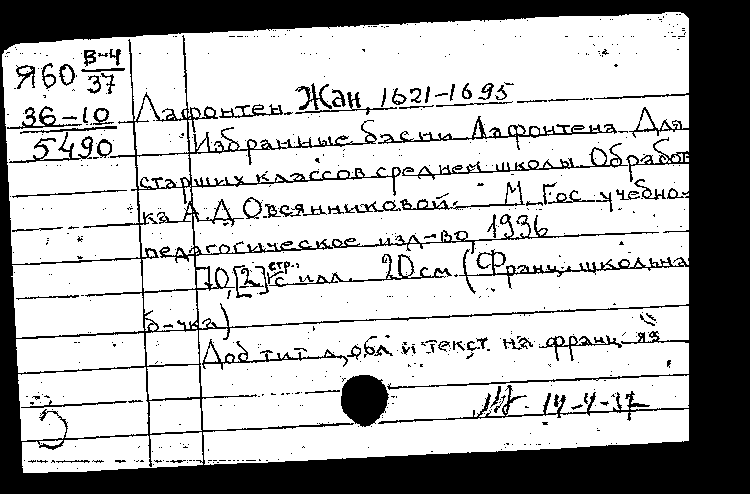 Я60 В-4/37
36-10
5490
Лафонтен Жан, 1621-1695
Избранные басни Лафонтена Для
старших классов средней школы. Обработ
ка А.Д. Овсянниковой. М. Гос учебно-
педагогическое изд-во, 1936
70,[2] стр., с илл. 20 см (Франц. школьна
б-чка)
Доб тит л, обл и текст на франц яз
14-4-37